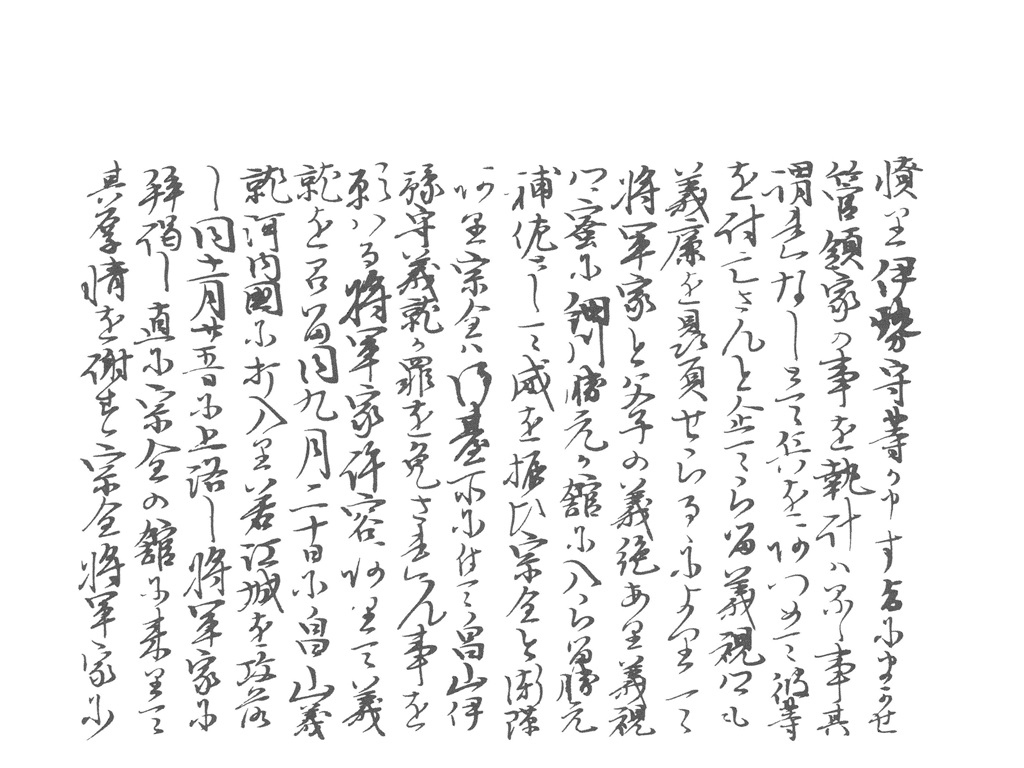 憤り伊勢守等か申す旨にまかせ
管領家の事を執計ハるゝ事其
謂れなしとて兵をあつめて彼等
を討亡さんと企てらる義視ハも
義廉を贔負せらるゝによりて
将軍家と父子の義絶あり義視
ハ密に細川勝元か舘に入らる勝元
補佐して威を振ひ宗全と確執
あり宗全ハ御臺所に付て畠山伊
豫守義就か罪を免されん事を
願ハる将軍家許容ありて義
就を召る同九月二十日に畠山義
就河内國に打入り若江城を攻落
し同十二月廿五日に上洛し将軍家に
拝謁し直に宗全の舘に来りて
其厚情を謝す宗全将軍家に